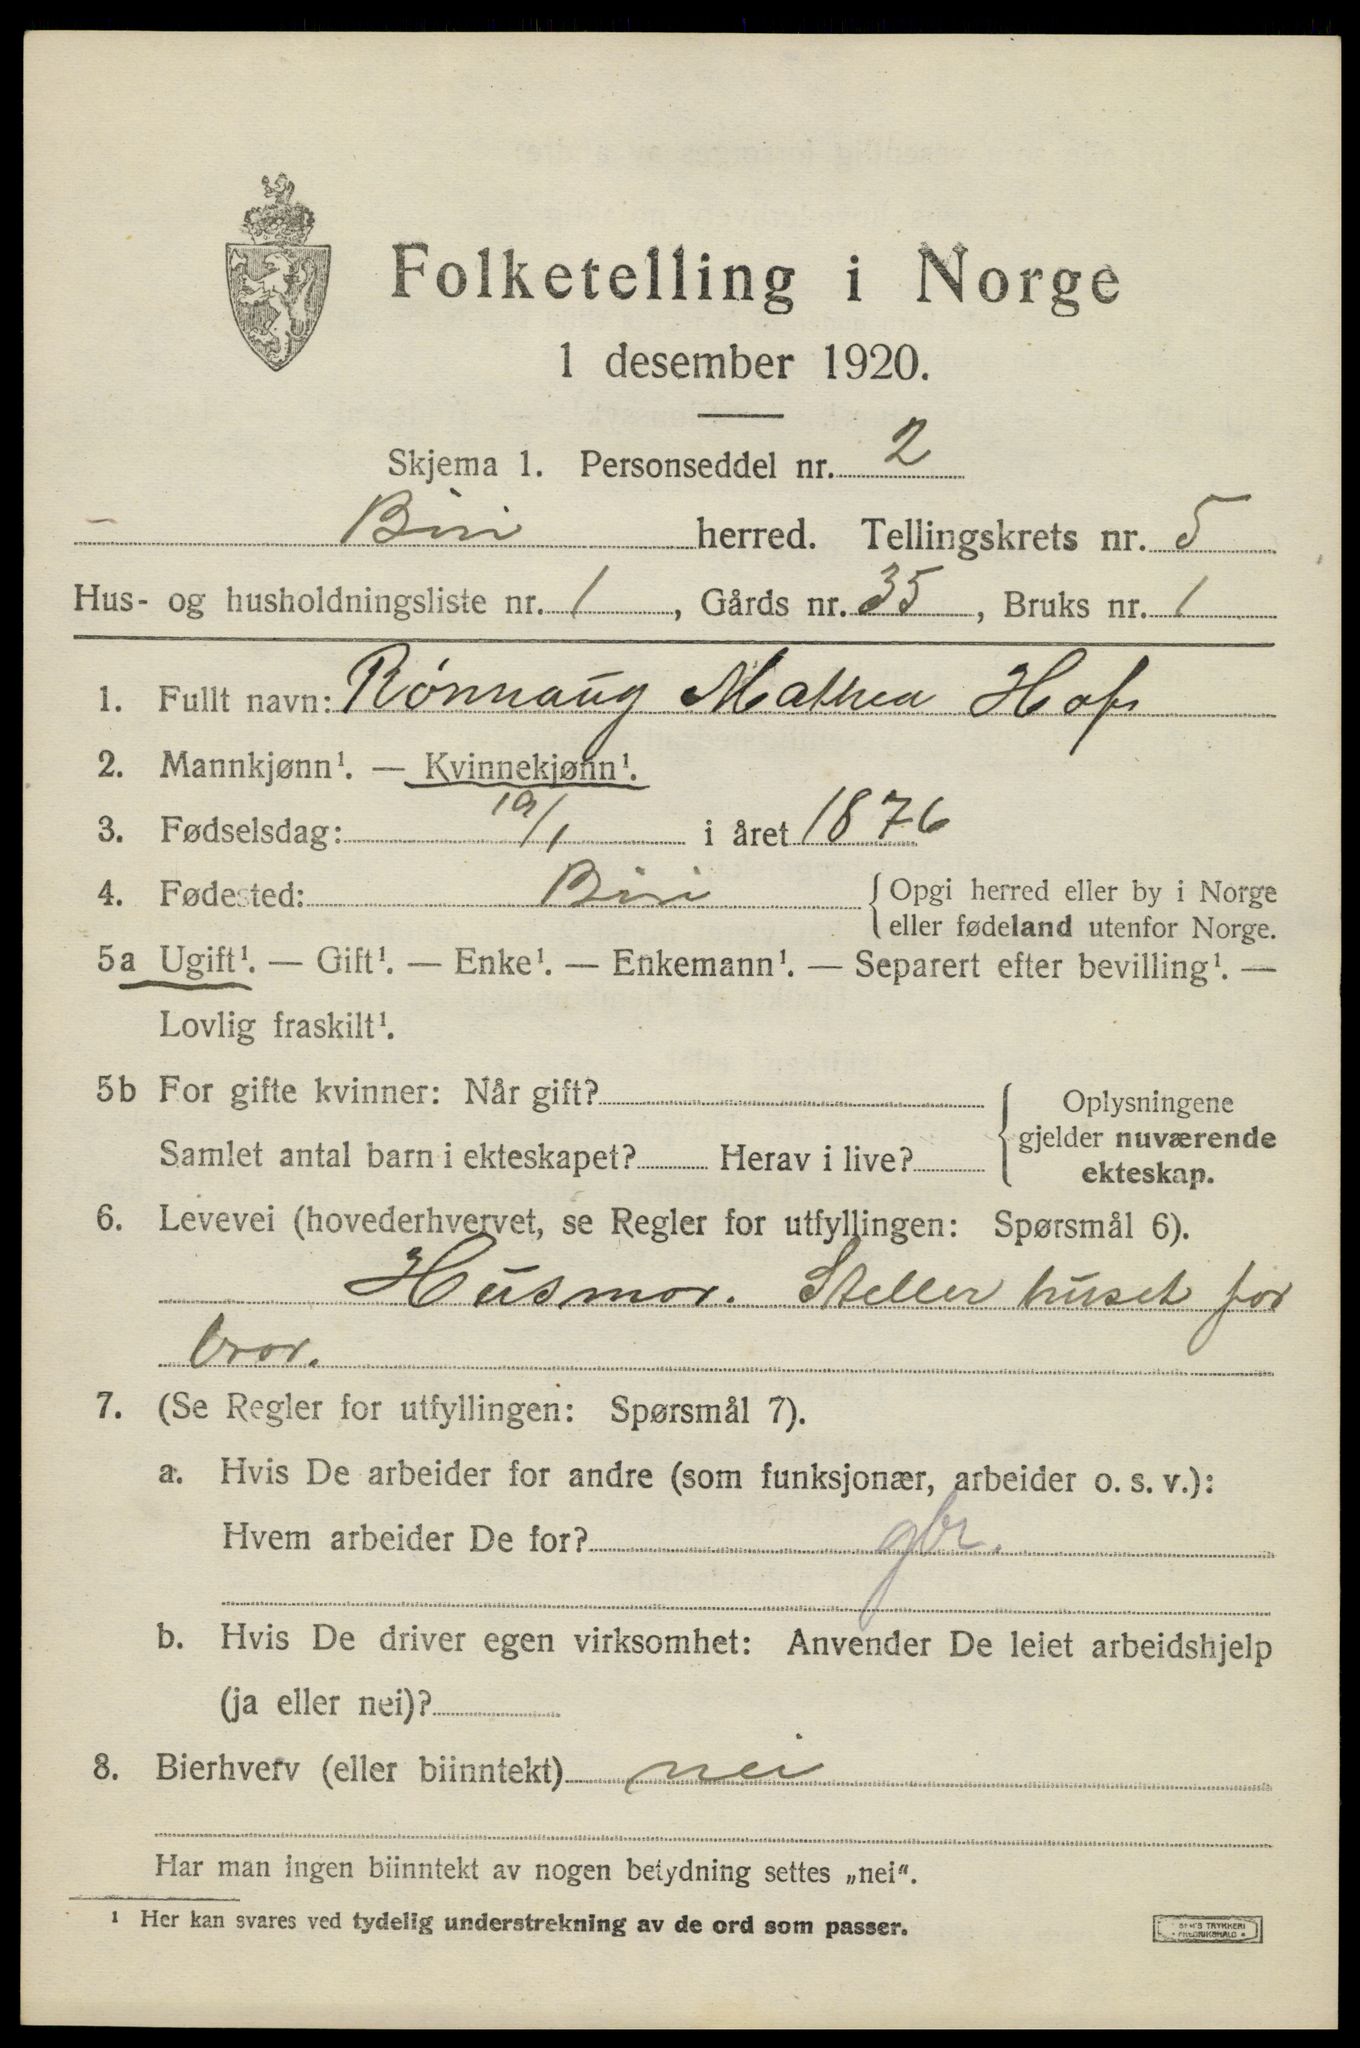 Folketelling i Norge
1 desember 1920.
Skjema 1. Personseddel nr. 2
Biri herred. Tellingskrets nr. 5
Hus- og husholdningsliste nr. 1, Gårds nr. 35, Bruks nr. 1
1. Fullt navn: Rønnaug Mathea Hofs
2. Mannkjønn¹. — Kvinnekjønn¹.
3. Fødselsdag: 19/1 i året 1876
4. Fødested: Biri {Opgi herred eller by i Norge
eller fødeland utenfor Norge.
5a Ugift¹. — Gift¹. — Enke¹. — Enkemann¹. — Separert efter bevilling¹. —
Lovlig fraskilt¹.
5b For gifte kvinner: Når gift?
Samlet antal barn i ekteskapet? Herav i live?
Oplysningene
gjelder nuværende
ekteskap.
6. Levevei (hovederhvervet, se Regler for utfyllingen: Spørsmål 6).
Husmor. Steller huset for
bror.
7. (Se Regler for utfyllingen: Spørsmål 7).
a. Hvis De arbeider for andre (som funksjonær, arbeider o. s. v.):
Hvem arbeider De for? gbr.
b. Hvis De driver egen virksomhet: Anvender De leiet arbeidshjelp
(ja eller nei)?
8. Bierhverv (eller biinntekt) nei
Har man ingen biinntekt av nogen betydning settes „nei".
¹ Her kan svares ved tydelig understrekning av de ord som passer.
TRYKKERI
FREDRIKSHALD